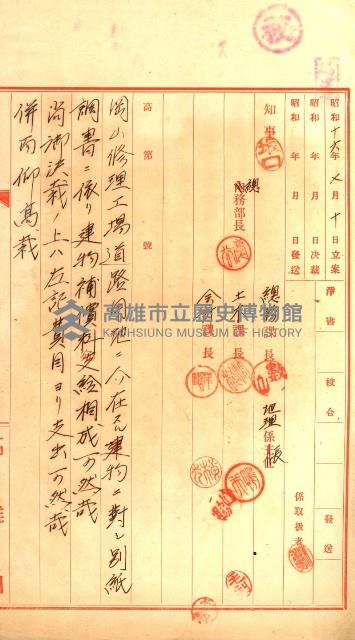 昭和十六年 月十日立案
昭和 年 月 日決裁
昭和 年 月 日發送
淨書
校合
發送
知事
總務部長
總務課長
土木課長
會計課長
地理係長
係取扱者
高第 號
岡山修理工場道路用地ニ介在スル建物ニ對シ別紙
調書ニ依リ建物補償料支給相成可然哉
尚御決裁ノ上ハ左記費目ヨリ支出可然哉
併而仰高裁
高雄市立歷史博物館
KAOHSIUNG MUSEUM OF HISTORY